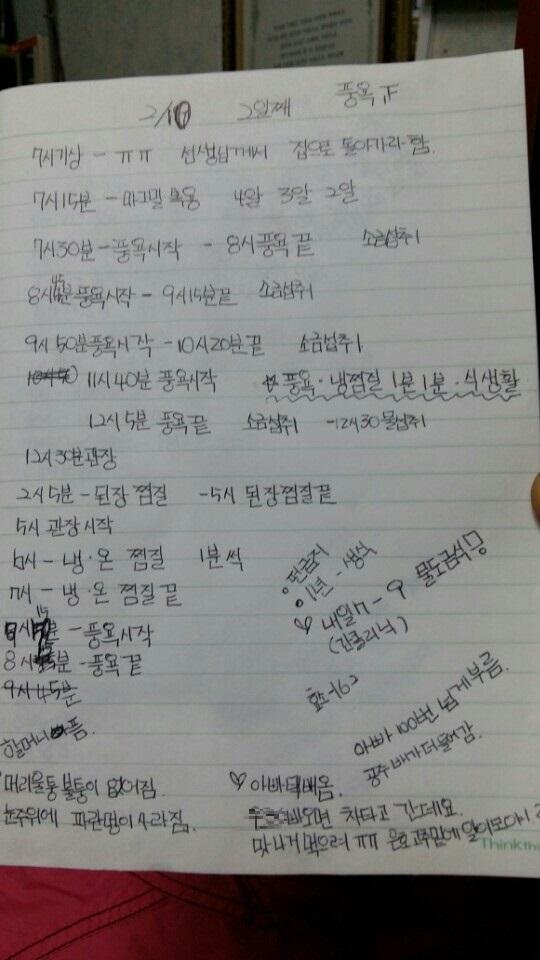 2/10 2일째 풍욕 正
7시기상 - ㅠㅠ 선생님께서 집으로 돌아가라 함.
7시15분 - 마그밀 복용 4알 3알 2알
7시30분 - 풍욕시작 - 8시풍욕 끝 소금섭취
8시45분 풍욕시작 - 9시15분끝 소금섭취
9시 50분풍욕시작 - 10시20분끝 소금섭취
11시40분 풍욕시작 ☆ 풍욕·냉찜질 1분1분·식생활
12시5분 풍욕 끝 소금섭취 - 12시30 물섭취
12시30분관장
2시5분 - 된장 찜질 - 5시 된장찜질끝
5시 관장시작
6시 - 냉·온 찜질 1분씩
7시 - 냉·온 찜질 끝
- 풍욕시작
8시 분 - 풍욕 끝
9시 45분
·1년 - 생식
♡ 내일 7 - 9 물도금식
할머니 품.
아빠 100번 넘게 부름.
공주 배가 더 들어감.
머리 울퉁불퉁이 없어짐.
눈주위에 파란멍이 사라짐.
♡ 아빠 옴.
오면 차타고 간데요.
맛나게 먹으려 ㅠㅠ
Think